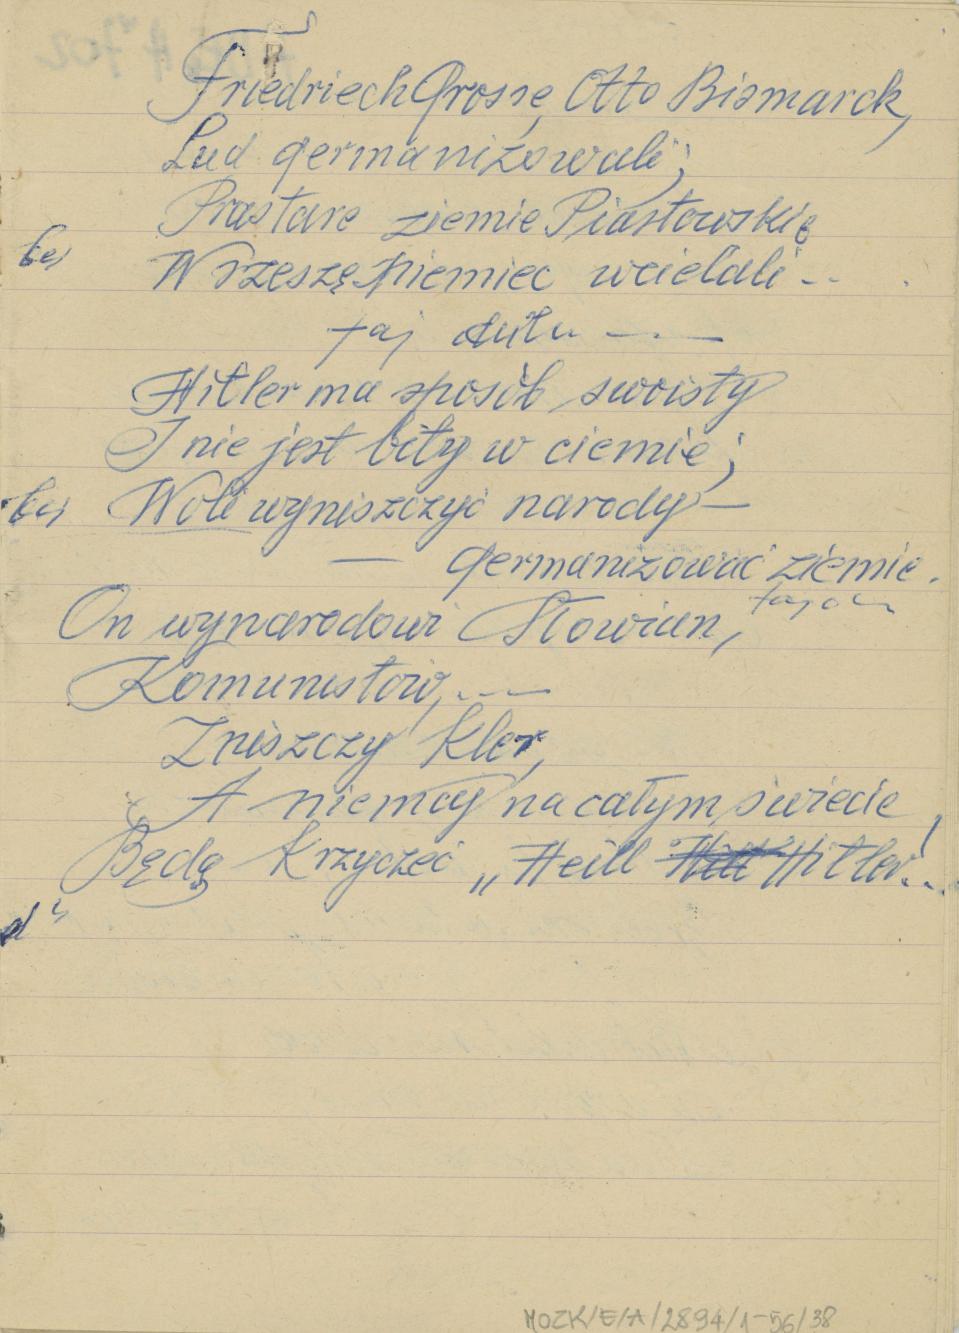 Friedriech Grosse, Otto Bismarck,
Lud germanizowali;
Prastare ziemie Piastowskie
W rzeszę niemiec wcielali - -
Hitler ma sposób swoisty
I nie jest bity w ciemię;
Woli wyniszczyć narody —
— germanizować ziemie.
On wynarodowi Słowian,
Komunistów, - - —
Zniszczy kler,
A niemcy na całym świecie
Będą krzyczeć „Heill Hitler!..
MOZK/E/A/2894/1-56/38